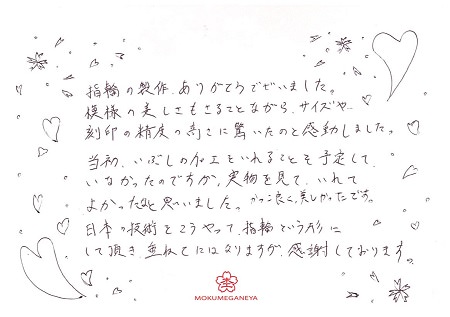 指輪の製作、ありがとうございました。
模様の美しさもさることながら、サイズや
刻印の精度の高さに驚いたのと感動しました。
当初、いぶしの加工をいれることを予定して
いなかったのですが、実物を見て、いれて
よかったなと思いました。かっこ良く、美しかったです。
日本の技術をこうやって指輪という形に
して頂き、重ねてにはなりますが、感謝しております。
MOKUMEGANEYA